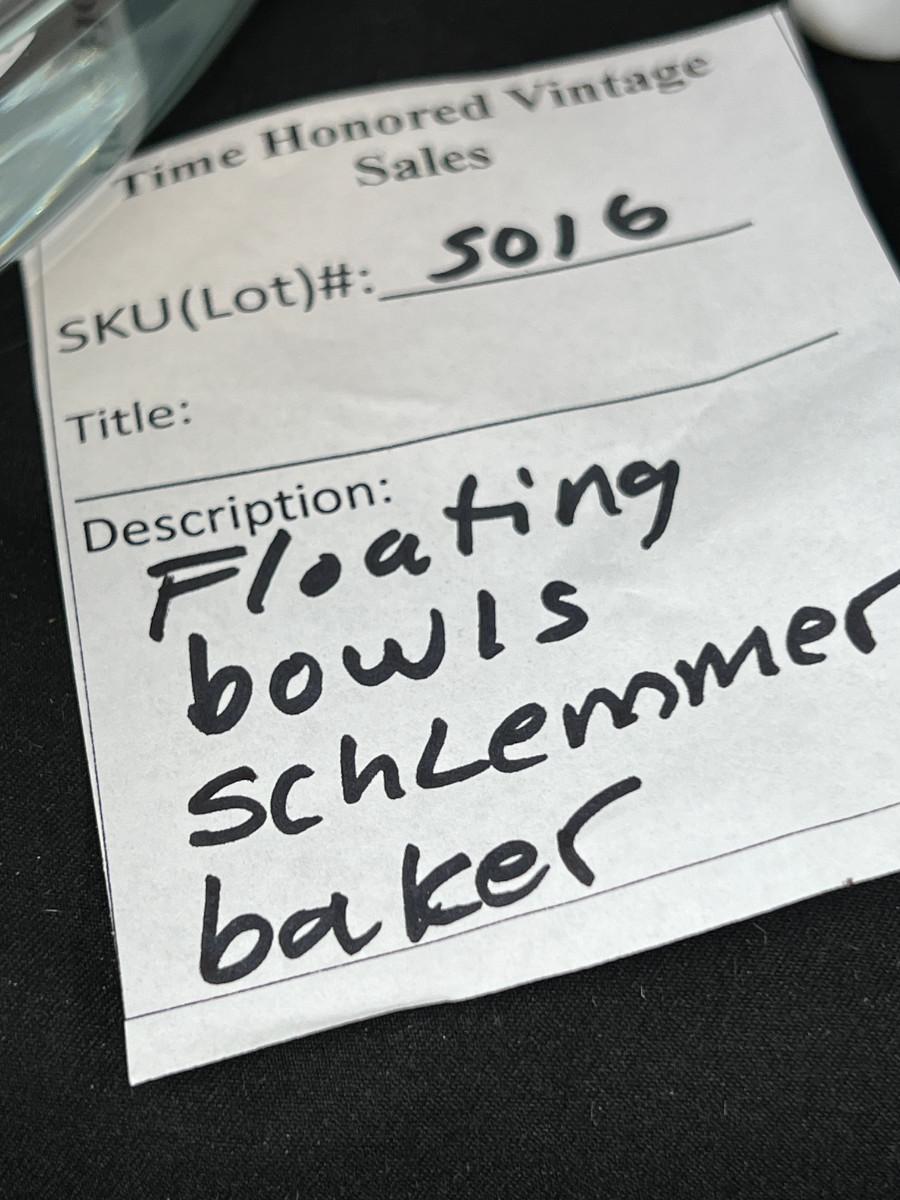 Time Honored Vintage
Sales
SKU(Lot)#: 5016
Title:
Description:
Floating
bowls
schLemmer
baker